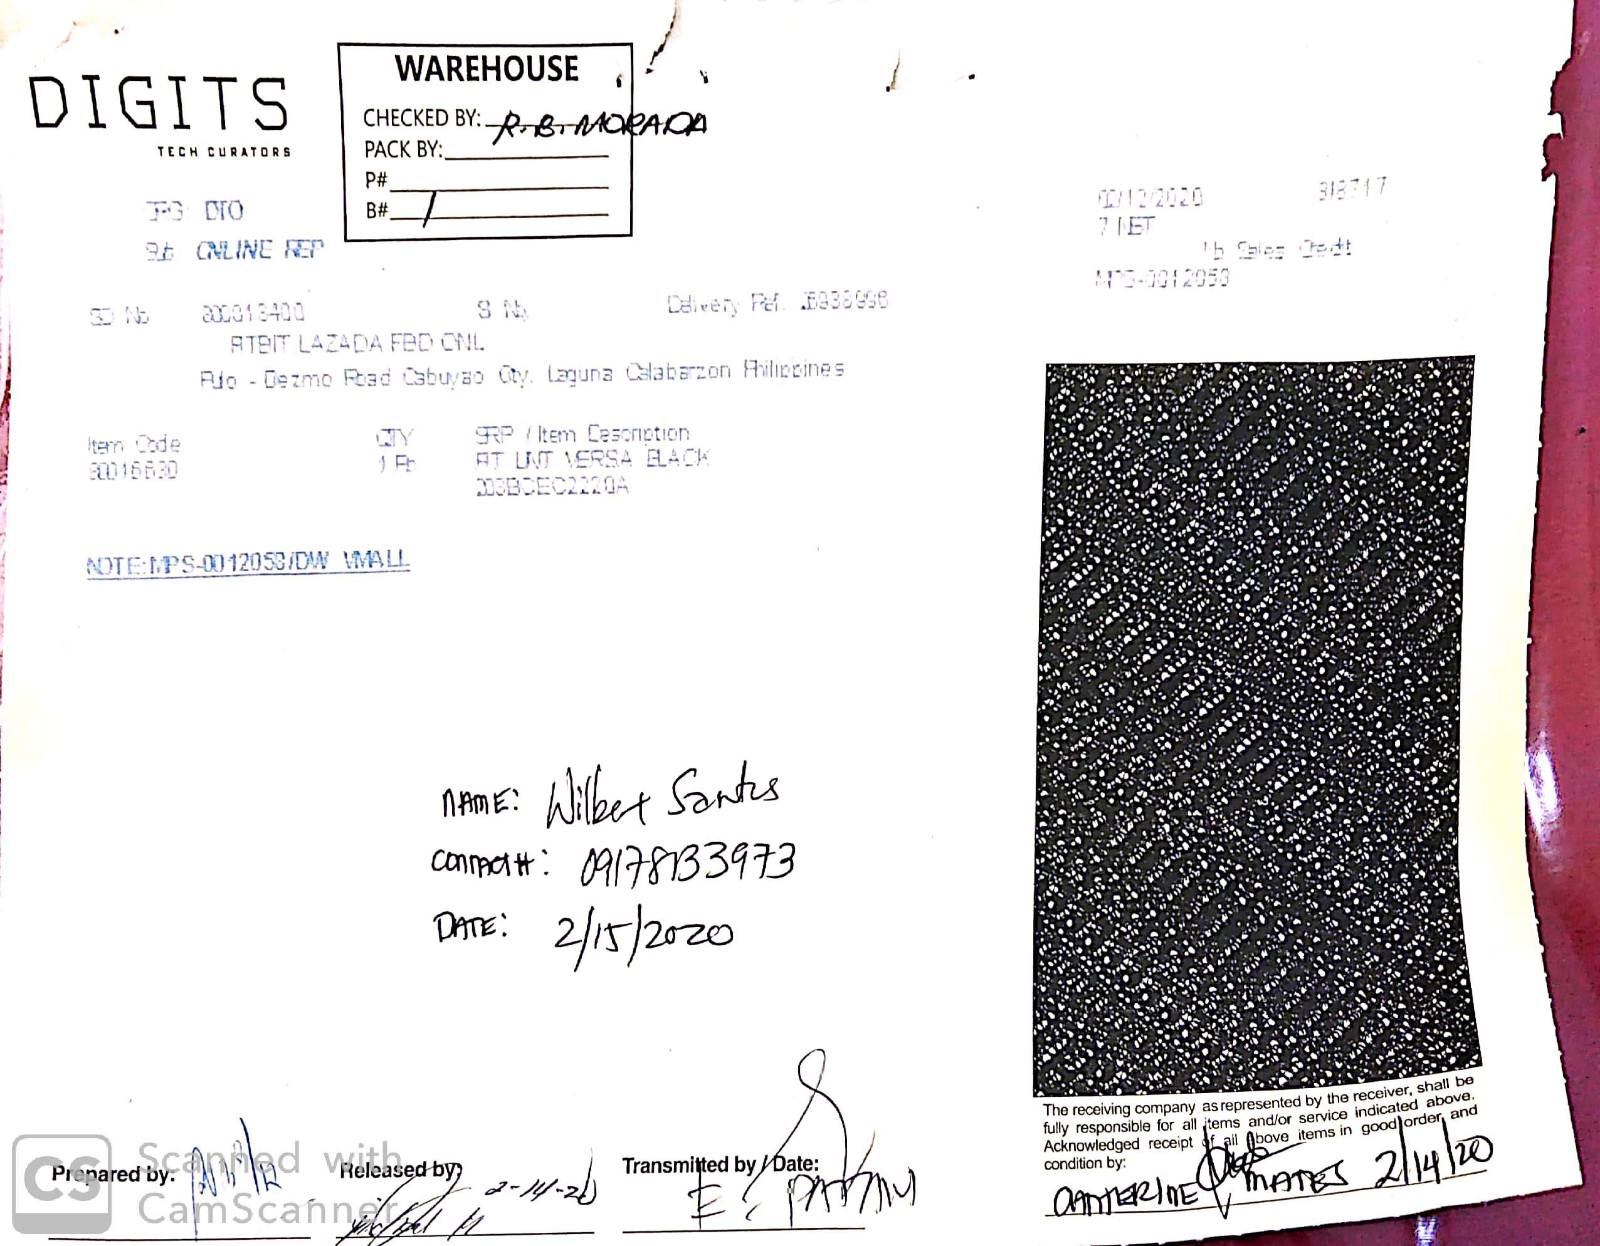 DIGITS
TECH CURATORS
WAREHOUSE
CHECKED BY: R.B. MORADA
PACK BY:
P#
B# 1
DTO
ONLINE REP
02/12/2020 318717
7 NET
Sales Credit
MPS-0012053
SO No SI No. Delivery Ref.
LAZADA FBD ONL
Road Cabuyao City, Laguna Calabarzon Philippines
Item Code QTY SRP / Item Description
VERSA BLACK
NOTE:MPS-0012053/DW VMALL
NAME: Wilbert Santos
CONTACT#: 09178133973
DATE: 2/15/2020
The receiving company as represented by the receiver, shall be
fully responsible for all items and/or service indicated above.
Acknowledged receipt of all above items in good order, and
condition by:
CATHERINE MATES 2/14/20
Prepared by:
Released by:
2-14-20
Transmitted by / Date:
E.
CS
Scanned with
CamScanner